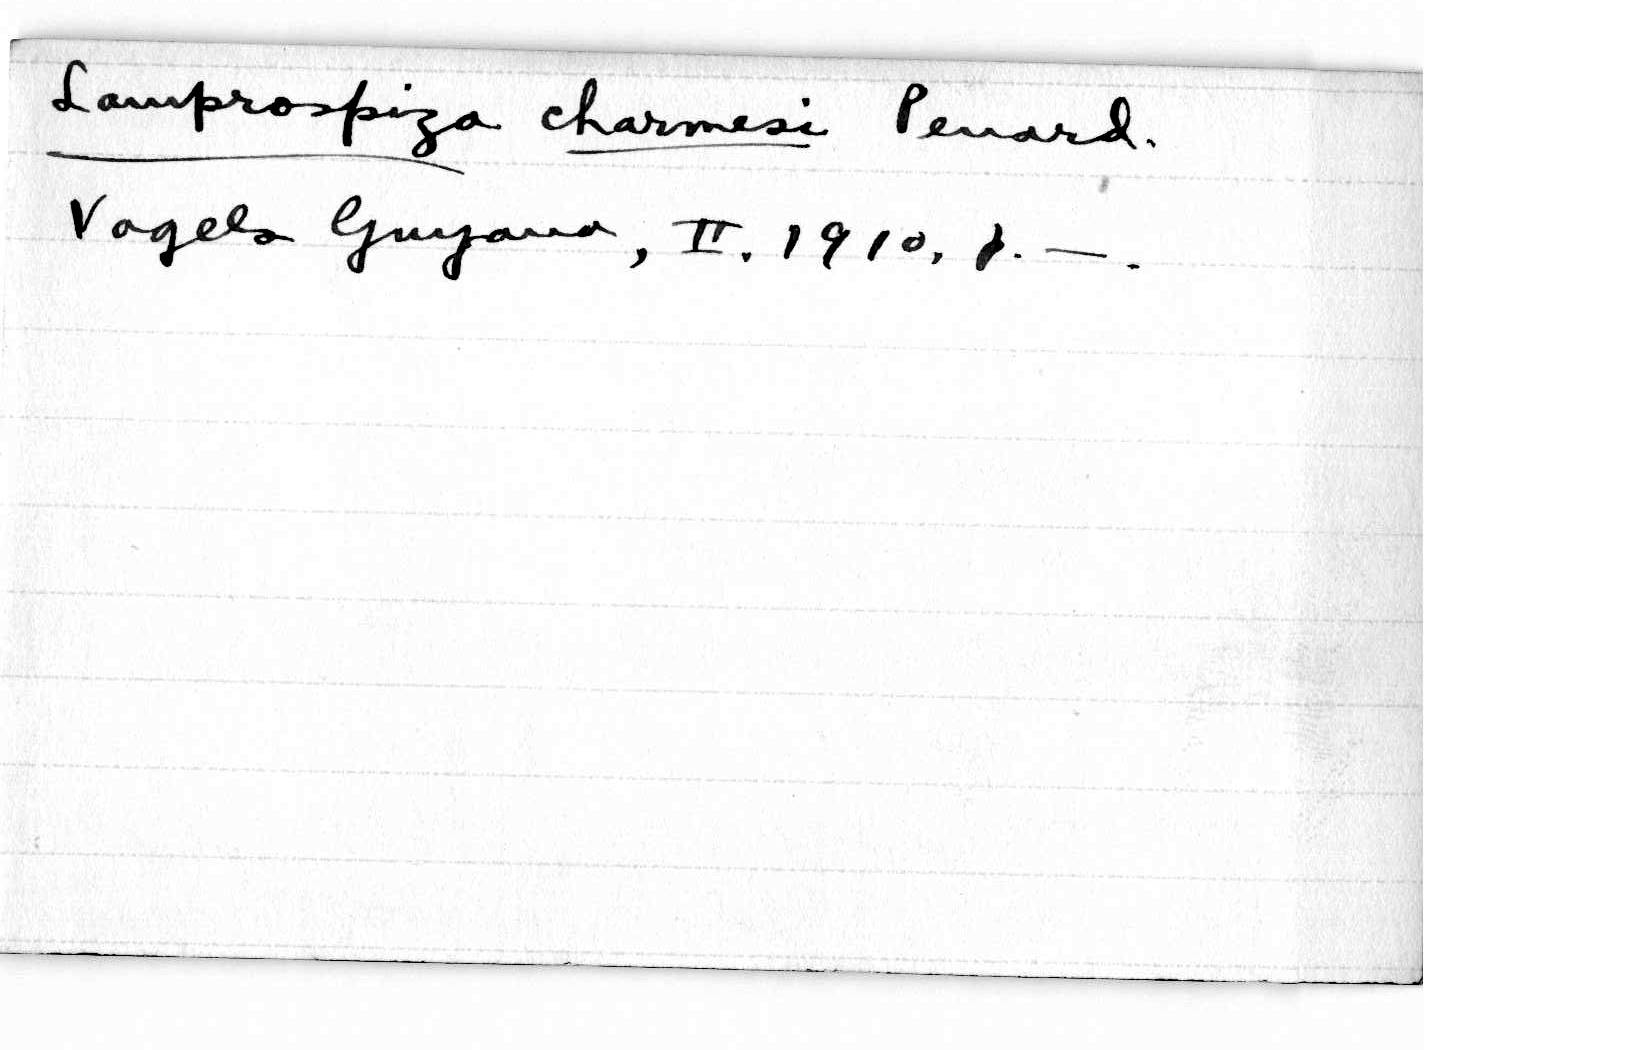 Lamprospiza charmesi Penard.
Vogels Guyana, II. 1910, p. —.